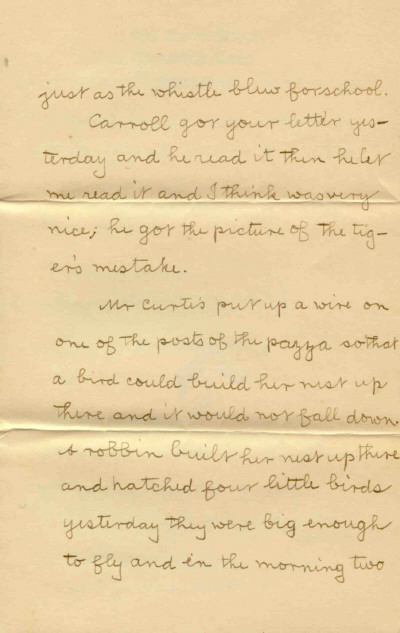 just as the whistle blew for school.
Carroll got your letter yes-
terday and he read it then he let
me read it and I think was very
nice; he got the picture of the tig-
er's mestake.
Mr Curtis put up a wire on
one of the posts of the pazza so that
a bird could build her nest up
there and it would not fall down.
A robbin built her nest up there
and hatched four little birds
yesterday they were big enough
to fly and in the morning two